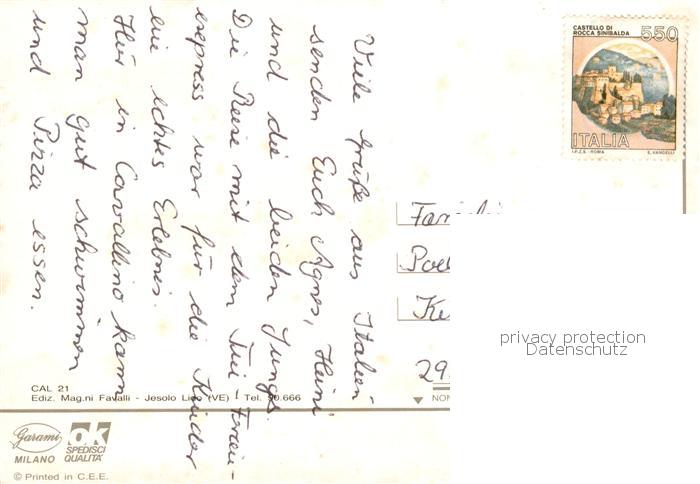 Viele Grüße aus Italien
senden Euch Agnes, Heini
und die beiden Jungs.
Die Reise mit dem Tui-Ferien-
express war für die Kinder
ein echtes Erlebnis.
Hier in Cavallino kann
man gut schwimmen
und Pizza essen.
CASTELLO DI
ROCCA SINIBALDA
550
ITALIA
I.P.Z.S. - ROMA E. VANGELLI
29
privacy protection
Datenschutz
CAL 21
Ediz. Mag.ni Favalli - Jesolo Lido (VE) - Tel. 90.666
Garami
MILANO
ok
SPEDISCI
QUALITÀ
© Printed in C.E.E.